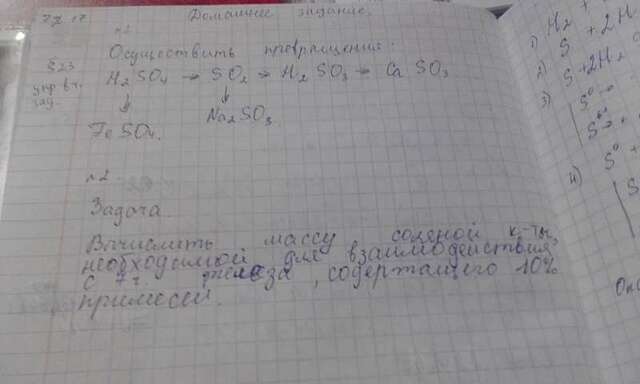 Домашнее задание.
n1
§23
Осуществить превращения:
H₂SO₄ → SO₂ → H₂SO₃ → CaSO₃
↓ ↓
FeSO₄. Na₂SO₃.
n2
Задача.
Вычислить массу соляной к-ты,
необходимой для взаимодействия
с 7 г. железа, содержащего 10%
примесей.
1) H₂ +
2) S + 2H
3) S + 2H₂
S⁰
4) S⁰ +